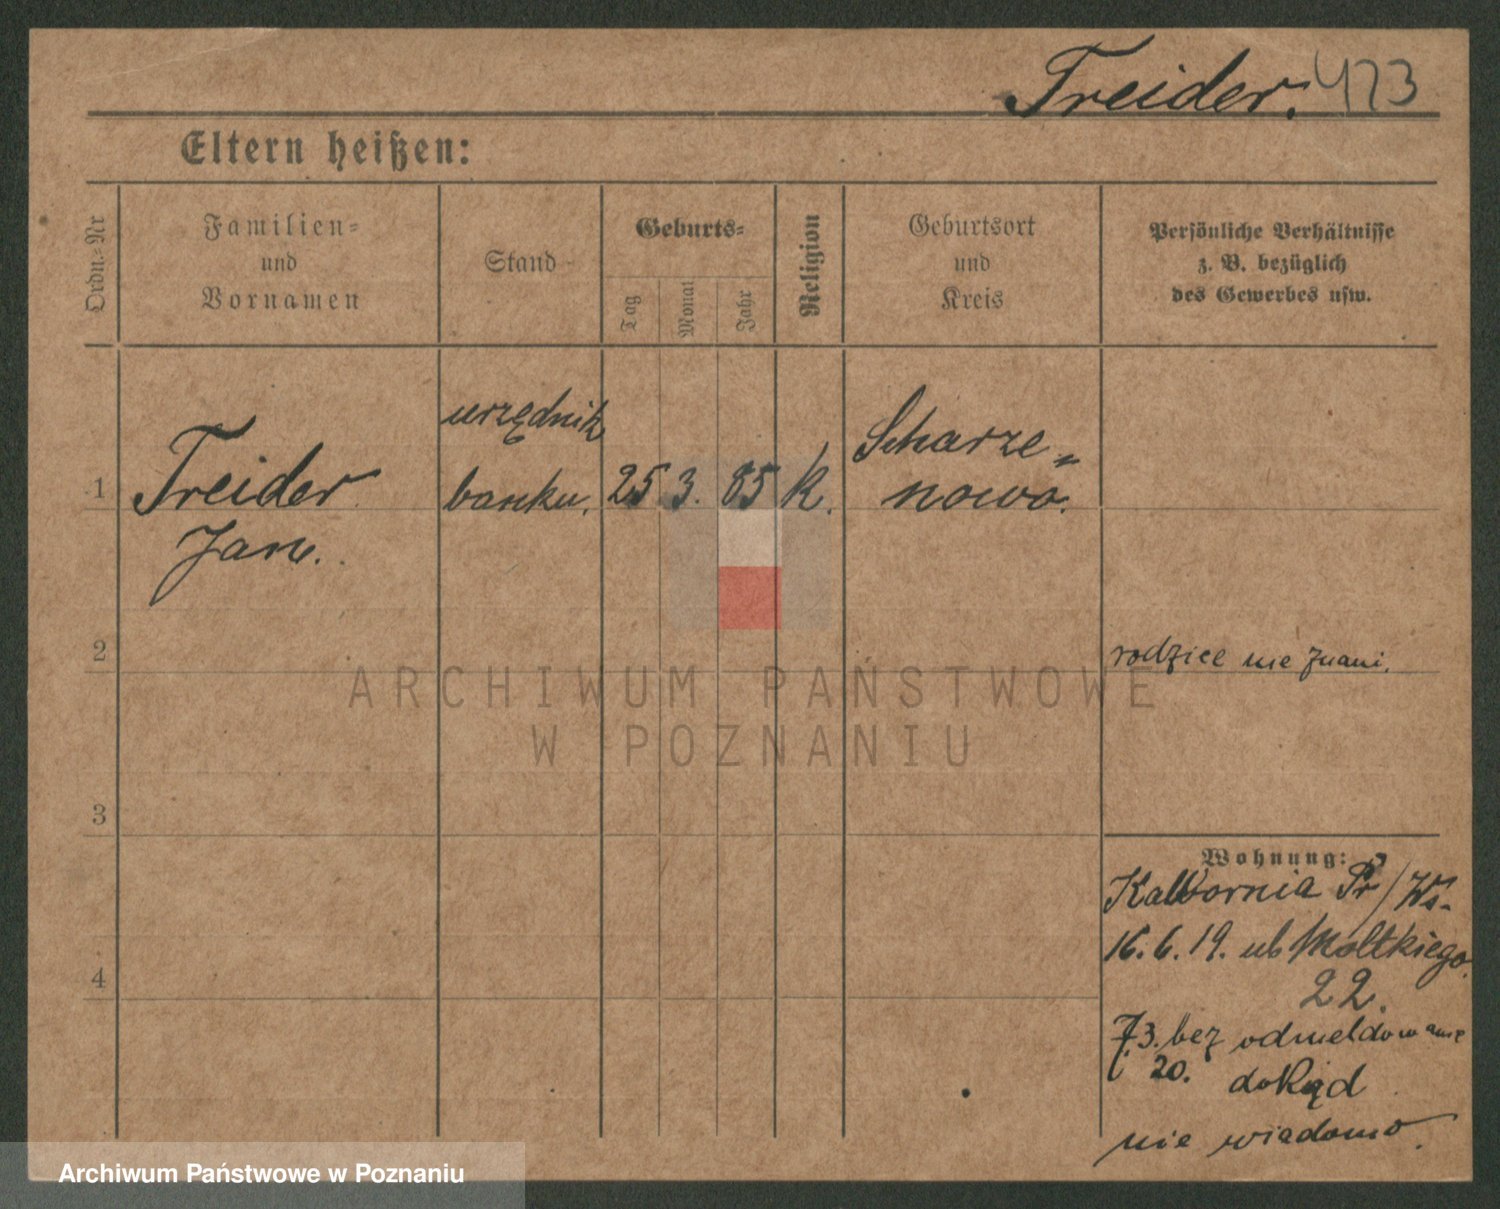 Treider. 473
Eltern heißen:
Ordn.-Nr
Familien-
und
Vornamen
Stand
Geburts-
Tag
Monat
Jahr
Religion
Geburtsort
und
Kreis
Persönliche Verhältnisse
z. B. bezüglich
des Gewerbes usw.
1
Treider
Jan.
urzędnik
banku.
25
3.
85
K.
Scharze=
nowo.
2
rodzice nie znani.
3
Wohnung:
Pr/Ws-
16.6.19. ul Moltkiego.
22.
7.3. bez odmeldowanie
20. dokąd
nie wiadomo.
4
ARCHIWUM PAŃSTWOWE
W POZNANIU
Archiwum Państwowe w Poznaniu